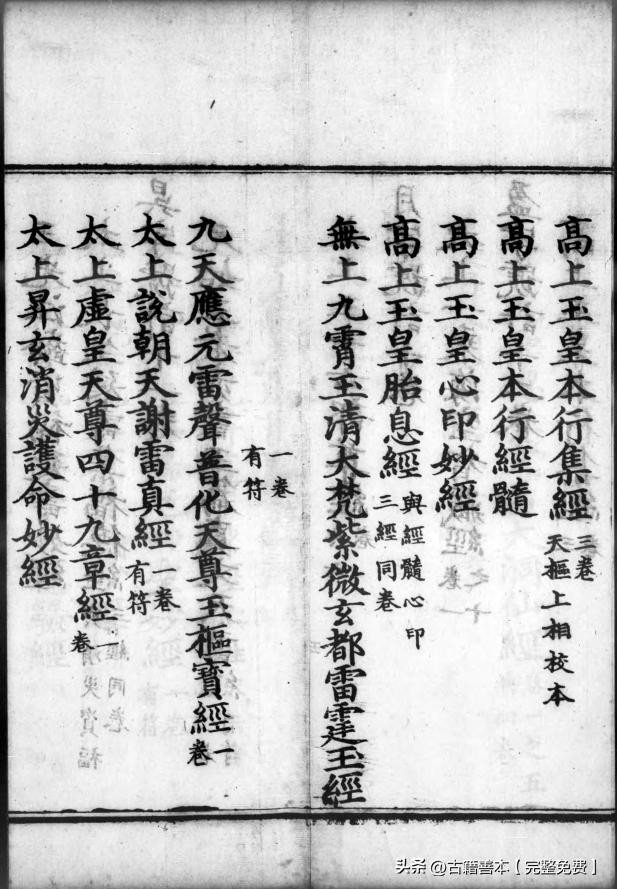 高上玉皇本行集經三卷天樞上相校本
高上玉皇本行經髓
高上玉皇心印妙經
高上玉皇胎息經與經髓心印三經同卷
無上九霄玉清大梵紫微玄都雷霆玉經
一卷有符
九天應元雷聲普化天尊玉樞寶經一卷
太上說朝天謝雷真經一卷有符
太上虛皇天尊四十九章經一卷
太上昇玄消災護命妙經
头条 @古籍善本【完整免费】